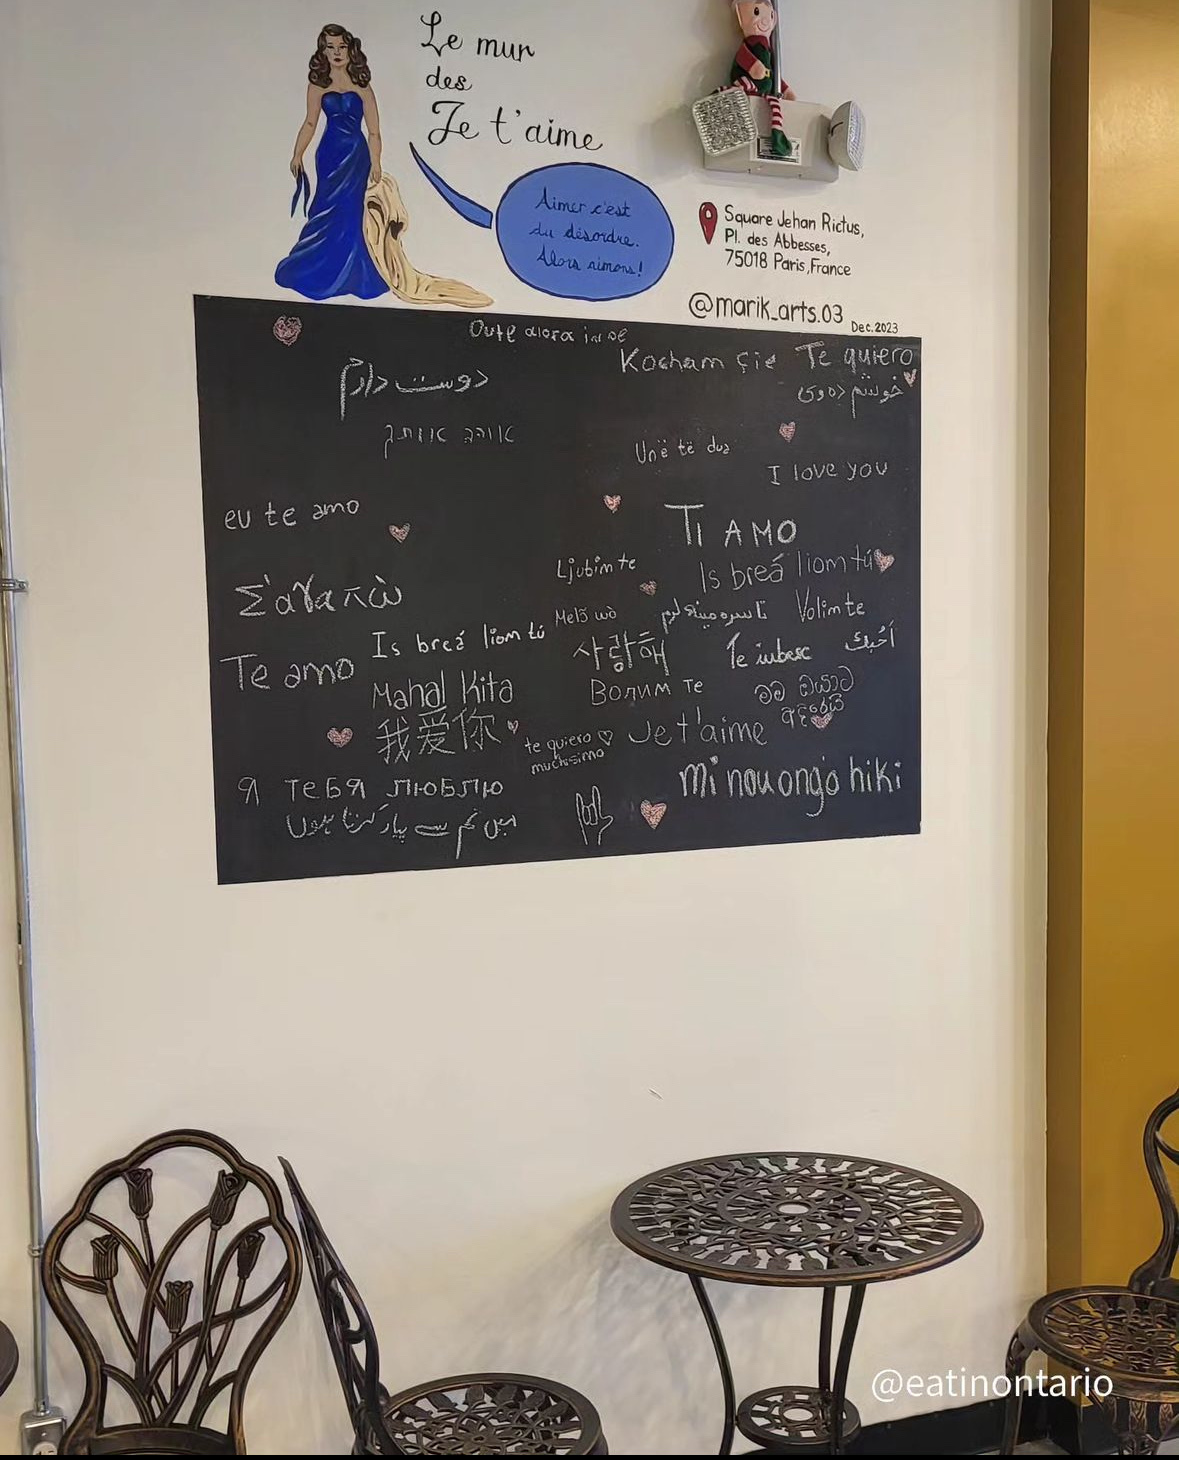 Le mur
des
Je t'aime
Aimer c'est
du désordre.
Alors aimons!
Square Jehan Rictus,
Pl. des Abbesses,
75018 Paris, France
@marik_arts.03
Dec. 2023
Kocham çie
Te quiero
دوست دارم
خوشم دەوێ
Unë të dua
I love you
eu te amo
Ti AMO
Ljubim te
Is breá liom tú
Σ'αγαπὼ
Melɔ̃ wò
Volim te
Is breá liom tú
사랑해
Te iubesc
أحبك
Te amo
Mahal Kita
Волим те
මම ඔයාට
ආදරෙයි
我爱你
te quiero
muchisimo
Je t'aime
Mi nou ongo hiki
Я тебя люблю
میں تم سے پیار کرتا ہوں
@eatinontario